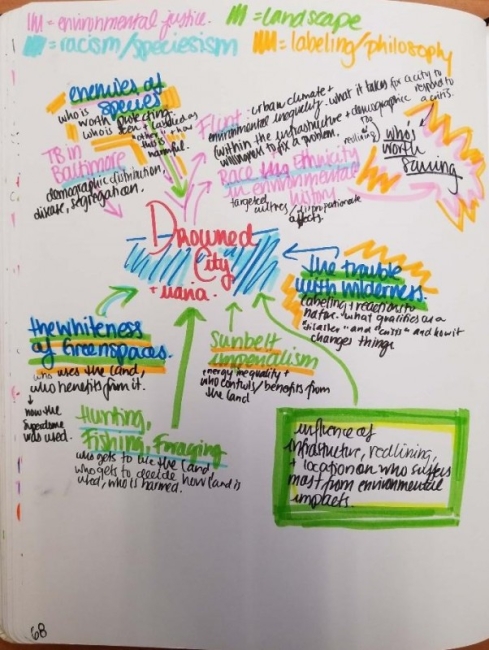 = environmental justice.
= landscape
= racism/speciesism
= labeling/philosophy
enemies of
species
who is
worth protecting,
who is seen + labeled as
"other" + how
this is
harmful.
TB in
Baltimore
demographic distribution,
disease, segregation.
Flint
urban climate +
environmental inequality. what it takes for a city to respond to
a crisis.
(within the infrastructure + demographic
willingness to fix a problem.
who's
worth
saving
Race and Ethnicity
in environmental
history
targeted
cultures/disproportionate
affects.
Drowned
City
+ Maria.
the trouble
with wilderness.
labeling + reactions to
nature. what qualifies as a
"disaster" and "crisis" and how it
changes things
the whiteness
of Greenspaces.
who uses the land,
who benefits from it.
how the
Superdome
was used.
Sunbelt
imperialism
energy inequality +
who controls/benefits from
the land
Hunting,
Fishing, Foraging
who gets to use the land,
who gets to decide how land is
used, who is harmed.
influence of
infrastructure, redlining,
+ location on who suffers
most from environmental
impacts.
68